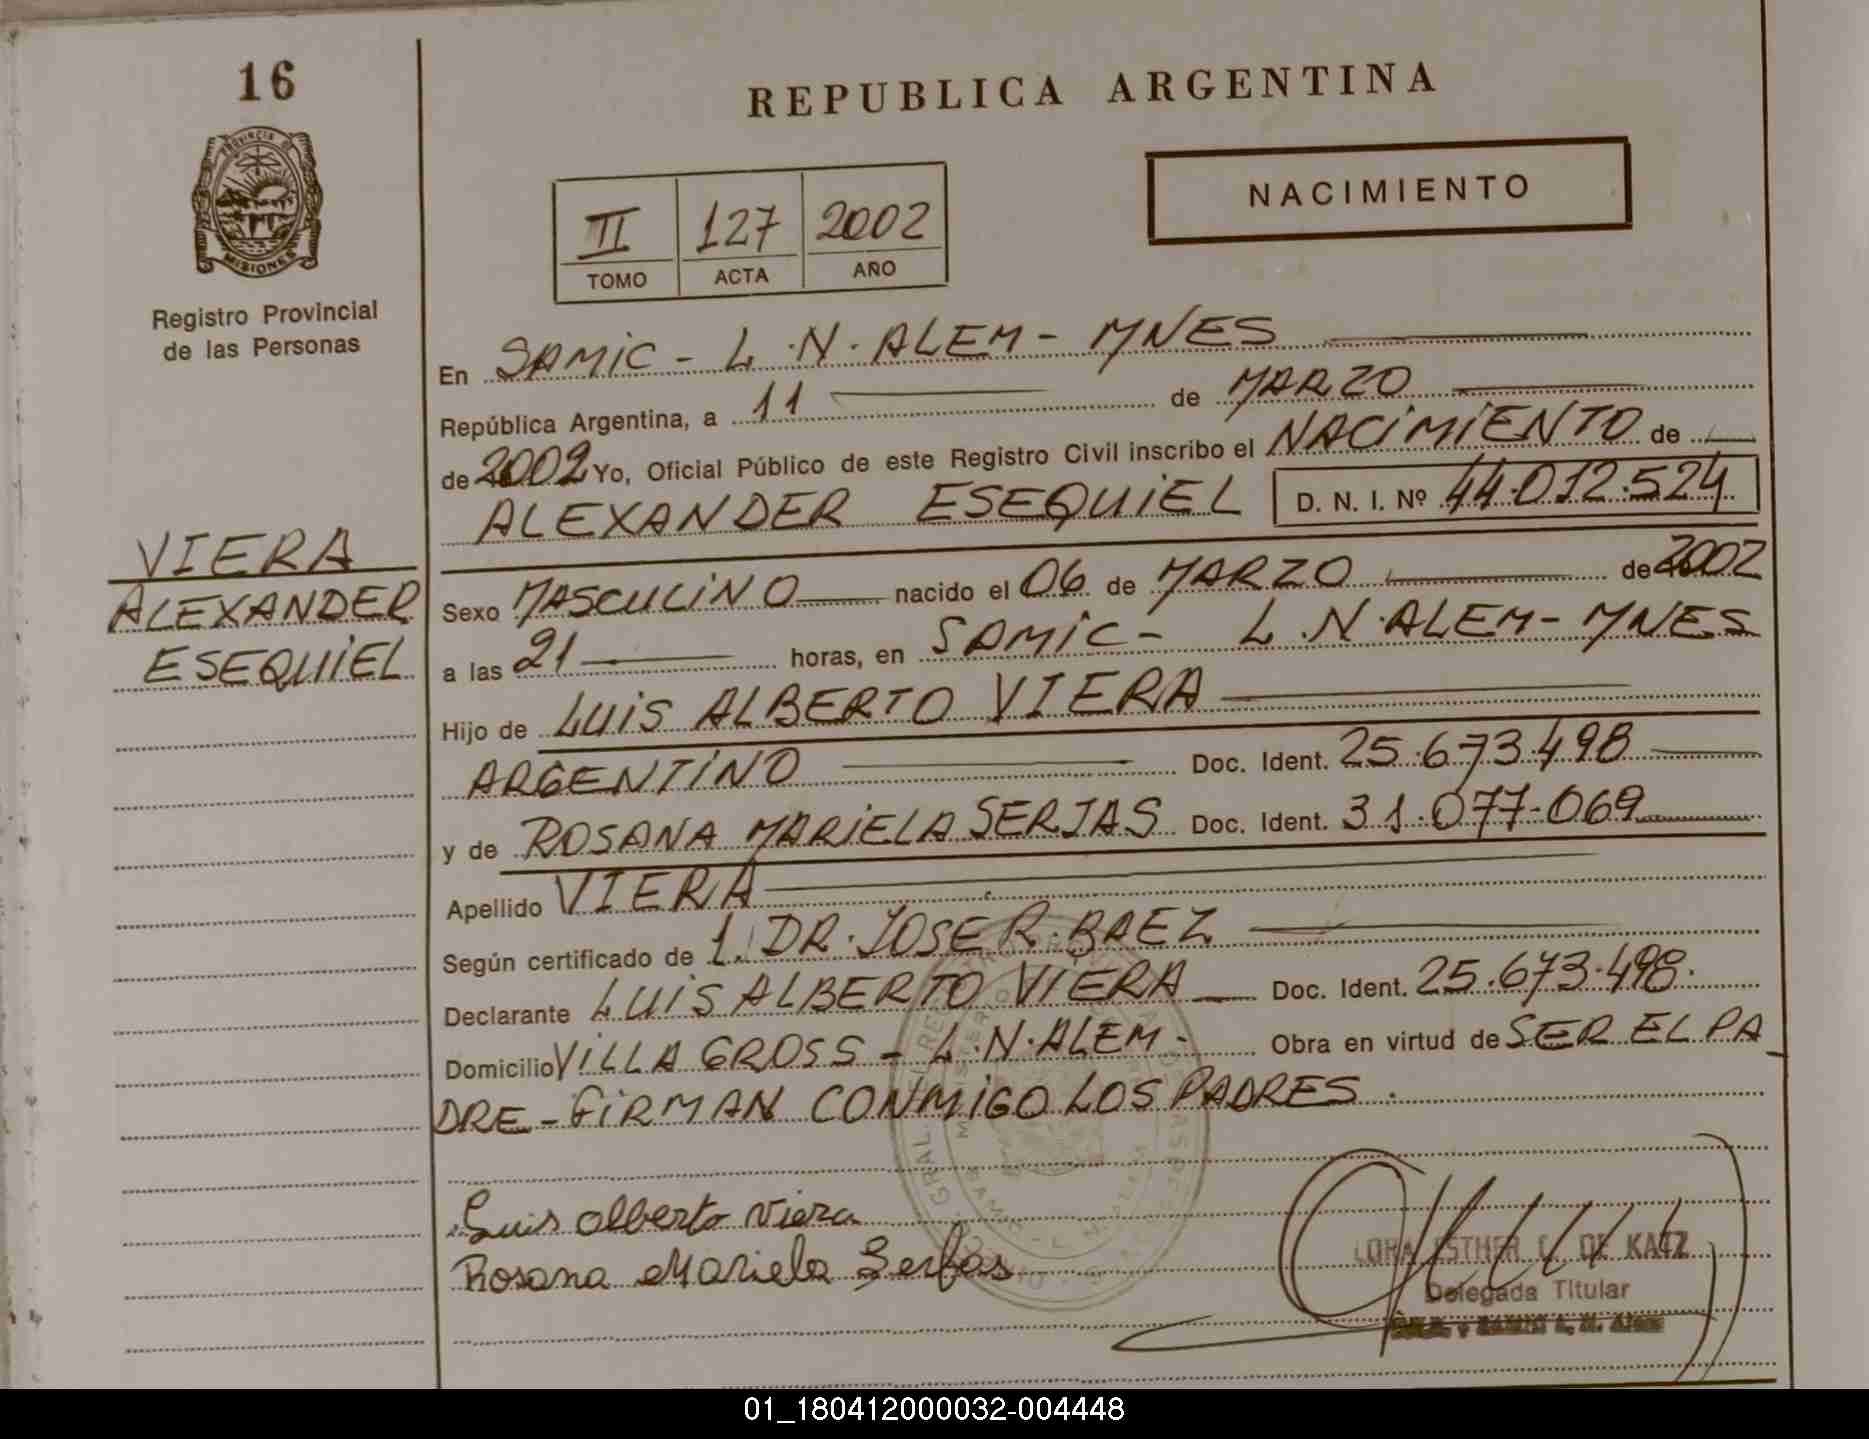 16
REPUBLICA ARGENTINA
PROVINCIA DE
MISIONES
NACIMIENTO
II 127 2002
TOMO ACTA AÑO
Registro Provincial
de las Personas
En SAMIC - L.N. ALEM - MNES
República Argentina, a 11 de MARZO
de 2002 Yo, Oficial Público de este Registro Civil inscribo el NACIMIENTO de
ALEXANDER ESEQUIEL D. N. I. Nº 44.012.524
VIERA
ALEXANDER
ESEQUIEL
Sexo MASCULINO nacido el 06 de MARZO de 2002
a las 21 horas, en SAMIC - L.N. ALEM - MNES
Hijo de LUIS ALBERTO VIERA
ARGENTINO Doc. Ident. 25.673.498
y de ROSANA MARIELA SERJAS Doc. Ident. 31.077.069
Apellido VIERA
Según certificado de 1. DR. JOSE R. BAEZ
Declarante LUIS ALBERTO VIERA Doc. Ident. 25.673.498.
Domicilio VILLA GROSS - L.N. ALEM - Obra en virtud de SER EL PA
DRE - FIRMAN CONMIGO LOS PADRES.
Luis Alberto Viera
Rosana Mariela
ESTHER DE KATZ
Delegada Titular
01_180412000032-004448